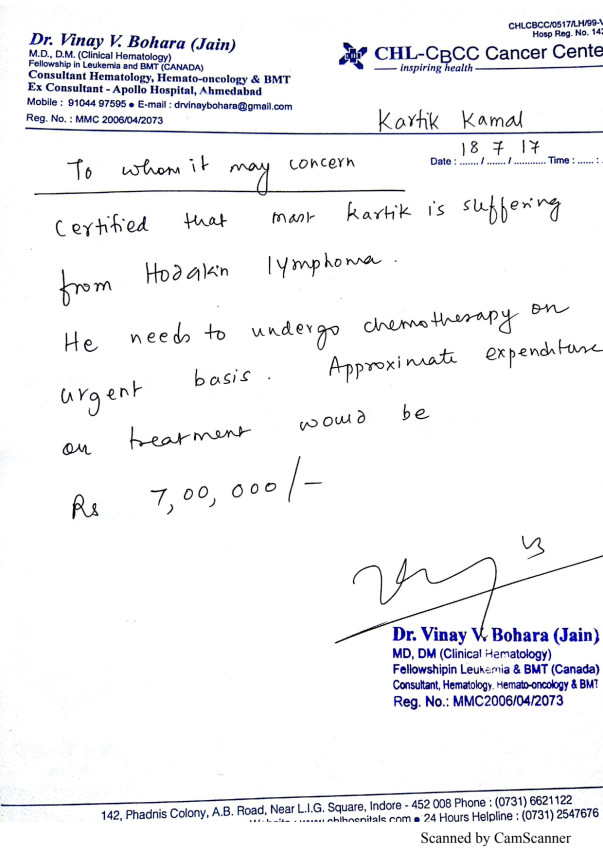 CHLCBCC/0517/LH/99-V
Hosp Reg. No. 142
Dr. Vinay V. Bohara (Jain)
M.D., D.M. (Clinical Hematology)
Fellowship in Leukemia and BMT (CANADA)
Consultant Hematology, Hemato-oncology & BMT
Ex Consultant - Apollo Hospital, Ahmedabad
Mobile : 91044 97595 • E-mail : drvinaybohara@gmail.com
Reg. No. : MMC 2006/04/2073
CHL-CBCC Cancer Cente
inspiring health
Kartik Kamal
18 7 17
Date : ....... / ....... / ............ Time : ...... :
To whom it may concern
Certified that mast Kartik is suffering
from Hodgkin lymphoma.
He needs to undergo chemotherapy on
urgent basis. Approximate expenditure
on treatment would be
Rs 7,00,000/-
Dr. Vinay V. Bohara (Jain)
MD, DM (Clinical Hematology)
Fellowshipin Leukemia & BMT (Canada)
Consultant, Hematology, Hemato-oncology & BMT
Reg. No.: MMC2006/04/2073
142, Phadnis Colony, A.B. Road, Near L.I.G. Square, Indore - 452 008 Phone : (0731) 6621122
www.chlhospitals.com • 24 Hours Helpline : (0731) 2547676
Scanned by CamScanner